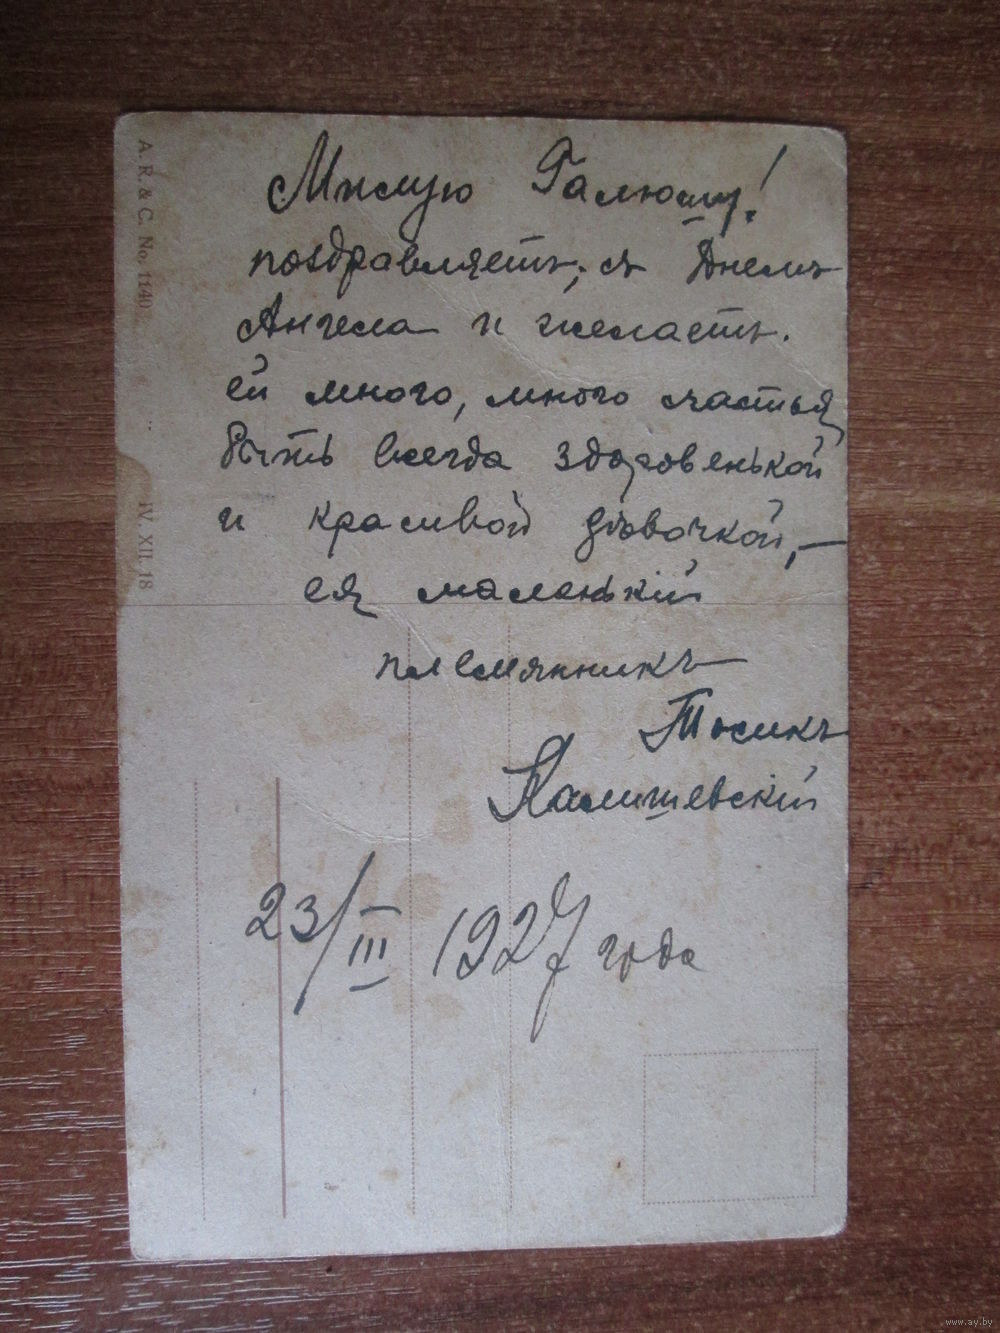 Милую Галюшу!
поздравляетъ, съ Днемъ
Ангела и желаетъ.
ей много, много счастья
быть всегда здоровенькой
и красивой дѣвочкой, —
ея маленькій
племянникъ
Тосикъ
Калишевскій
23/III 1927 года
A. R. & C. No. 1140
IV. XII. 18
www.ay.by